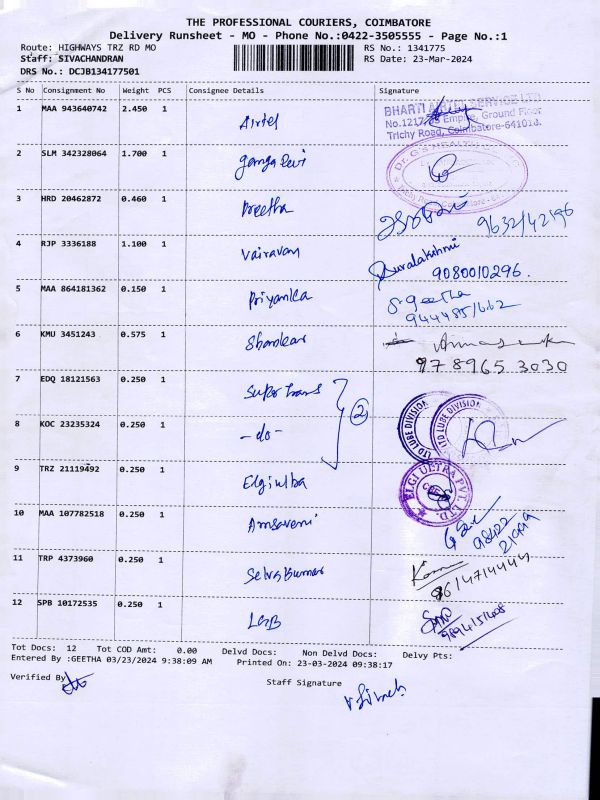 THE PROFESSIONAL COURIERS, COIMBATORE
Delivery Runsheet - MO - Phone No.:0422-3505555 - Page No.:1
Route: HIGHWAYS TRZ RD MO RS No.: 1341775
Staff: SIVACHANDRAN RS Date: 23-Mar-2024
DRS No.: DCJB134177501
S No Consignment No Weight PCS Consignee Details Signature
1 MAA 943640742 2.450 1 Airtel
BHARTI AIRTEL SERVICE LTD
Empire, Ground Floor
Trichy Road, Coimbatore-641018.
2 SLM 342328064 1.700 1 Ganga Devi
3 HRD 20462872 0.460 1 Preetha
4 RJP 3336188 1.100 1 Vairavan
9080010296.
5 MAA 864181362 0.150 1 Priyanka
S. geetha
6 KMU 3451243 0.575 1 Shankar
978965 3030
7 EDQ 18121563 0.250 1 Super trans
2
LTD LUBE DIVISION
LTD LUBE DIVISION
8 KOC 23235324 0.250 1 -do-
9 TRZ 21119492 0.250 1 Elgi ultra
ELGI ULTRA PVT LTD.
10 MAA 107782518 0.250 1 Amsaveni
11 TRP 4373960 0.250 1 Selvakumar
12 SPB 10172535 0.250 1 LGB
Tot Docs: 12 Tot COD Amt: 0.00 Delvd Docs: Non Delvd Docs: Delvy Pts:
Entered By :GEETHA 03/23/2024 9:38:09 AM Printed On: 23-03-2024 09:38:17
Verified By
Staff Signature